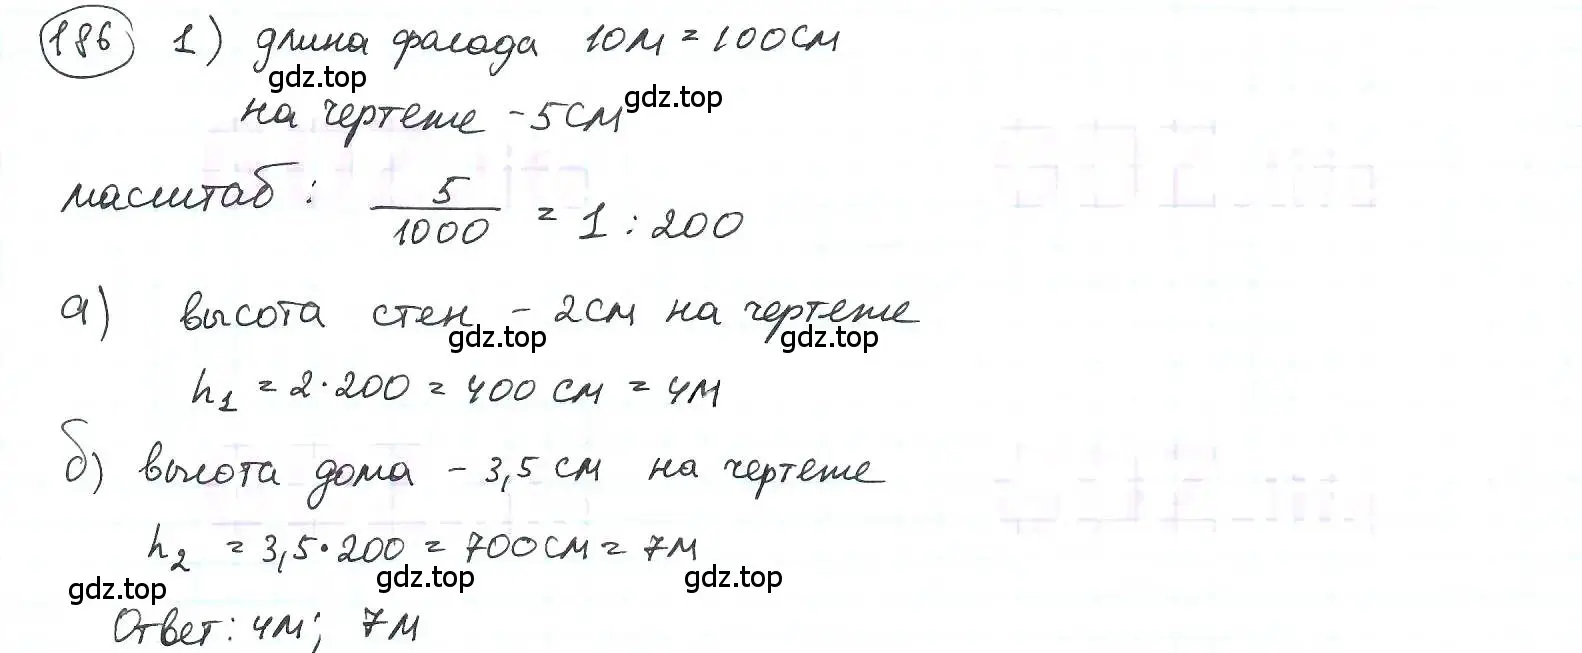 186 1) длина фасада 10м = 100см
gdz.top
на чертеже - 5см gdz.top
масштаб: 5/1000 = 1 : 200
а) высота стен - 2см на чертеже
gdz.top gdz.top
h₁ = 2·200 = 400 см = 4м
б) высота дома - 3,5 см на чертеже
h₂ = 3,5·200 = 700см = 7м
gdz.top gdz.top gdz.top
Ответ: 4м; 7м